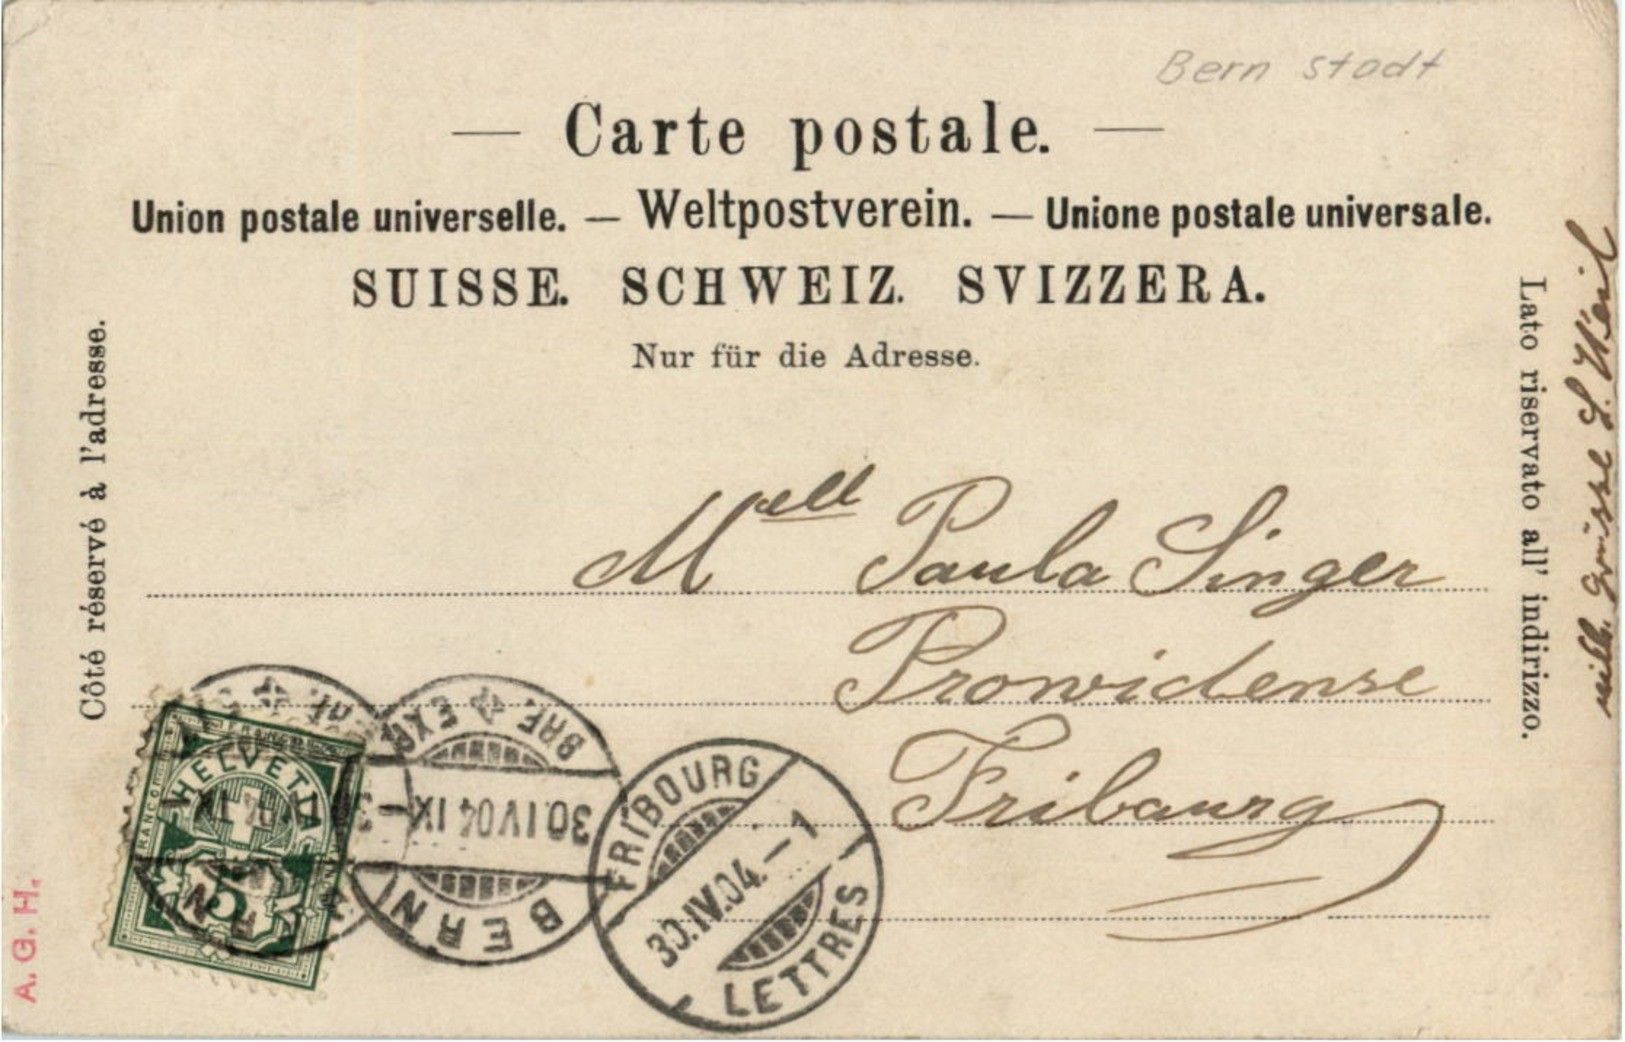 Bern stadt
— Carte postale. —
Union postale universelle. — Weltpostverein. — Unione postale universale.
SUISSE. SCHWEIZ. SVIZZERA.
Nur für die Adresse.
Côté réservé à l'adresse.
Lato riservato all' indirizzo.
Mell Paula Singer
Prowidense
Fribourg
HELVETIA
FRANCO
5
BERN
30.IV.04.IX
BRF. EXP.
FRIBOURG
30.IV.04.-1
LETTRES
A. G. H.